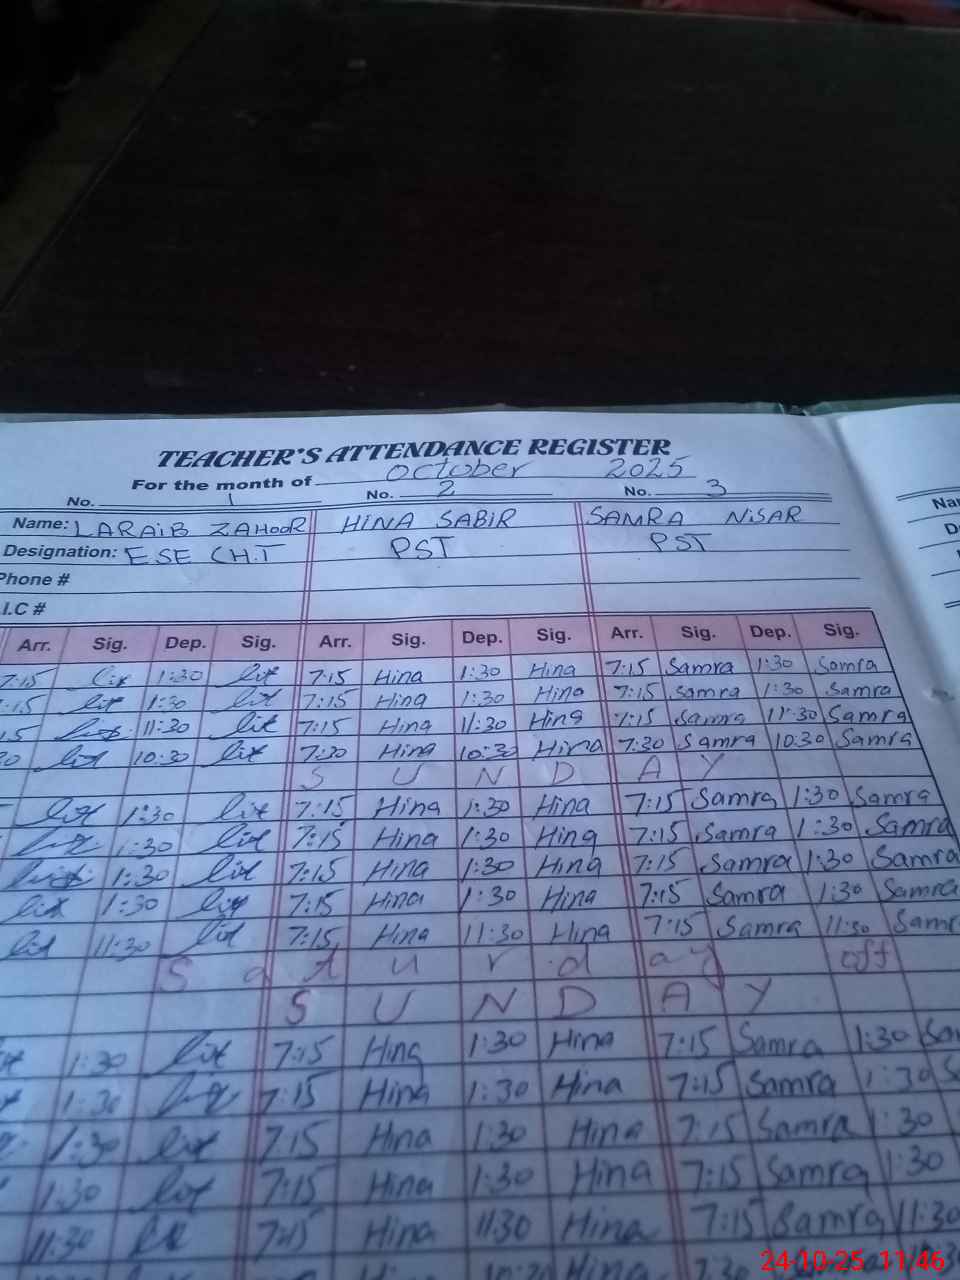 TEACHER'S ATTENDANCE REGISTER
For the month of October 2025
No. 1 No. 2 No. 3
Name: LARAiB ZAHOOR HiNA SABiR SAMRA NiSAR
Designation: ESE CH.T PST PST
Phone #
.I.C #
Arr. Sig. Dep. Sig. Arr. Sig. Dep. Sig. Arr. Sig. Dep. Sig.
7:15 1:30 7:15 Hina 1:30 Hina 7:15 Samra 1:30 Samra
:15 1:30 7:15 Hina 1:30 Hina 7:15 Samra 1:30 Samra
15 11:30 7:15 Hina 11:30 Hina 7:15 Samra 11:30 Samra
30 10:30 7:30 Hina 10:30 Hina 7:30 Samra 10:30 Samra
S U N D A Y
1:30 7:15 Hina 1:30 Hina 7:15 Samra 1:30 Samra
1:30 7:15 Hina 1:30 Hina 7:15 Samra 1:30 Samra
1:30 7:15 Hina 1:30 Hina 7:15 Samra 1:30 Samra
1:30 7:15 Hina 1:30 Hina 7:15 Samra 1:30 Samra
11:30 7:15 Hina 11:30 Hina 7:15 Samra 11:30 Samr
S a t u r d ay off
S U N D A Y
1:30 7:15 Hina 1:30 Hina 7:15 Samra 1:30 Sa
1:30 7:15 Hina 1:30 Hina 7:15 Samra 1:30 S
1:30 7:15 Hina 1:30 Hina 7:15 Samra 1:30
1:30 7:15 Hina 1:30 Hina 7:15 Samra 1:30
11:30 7:15 Hina 11:30 Hina 7:15 Samra 11:30
10:30 7:30
Na
D
24-10-25 11:46